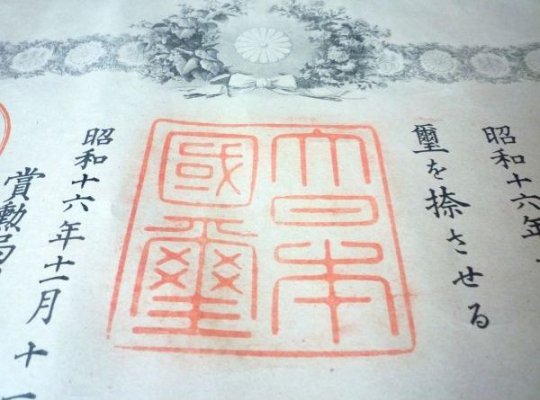 昭和十六年
璽を捺させる
大日本
國璽
昭和十六年十二月十一
賞勲局